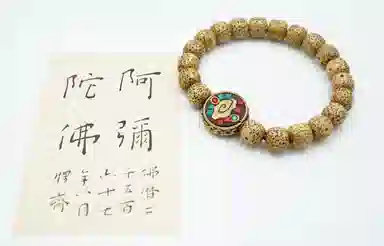 阿彌
陀佛
佛曆二
千五百
六十七
年八月